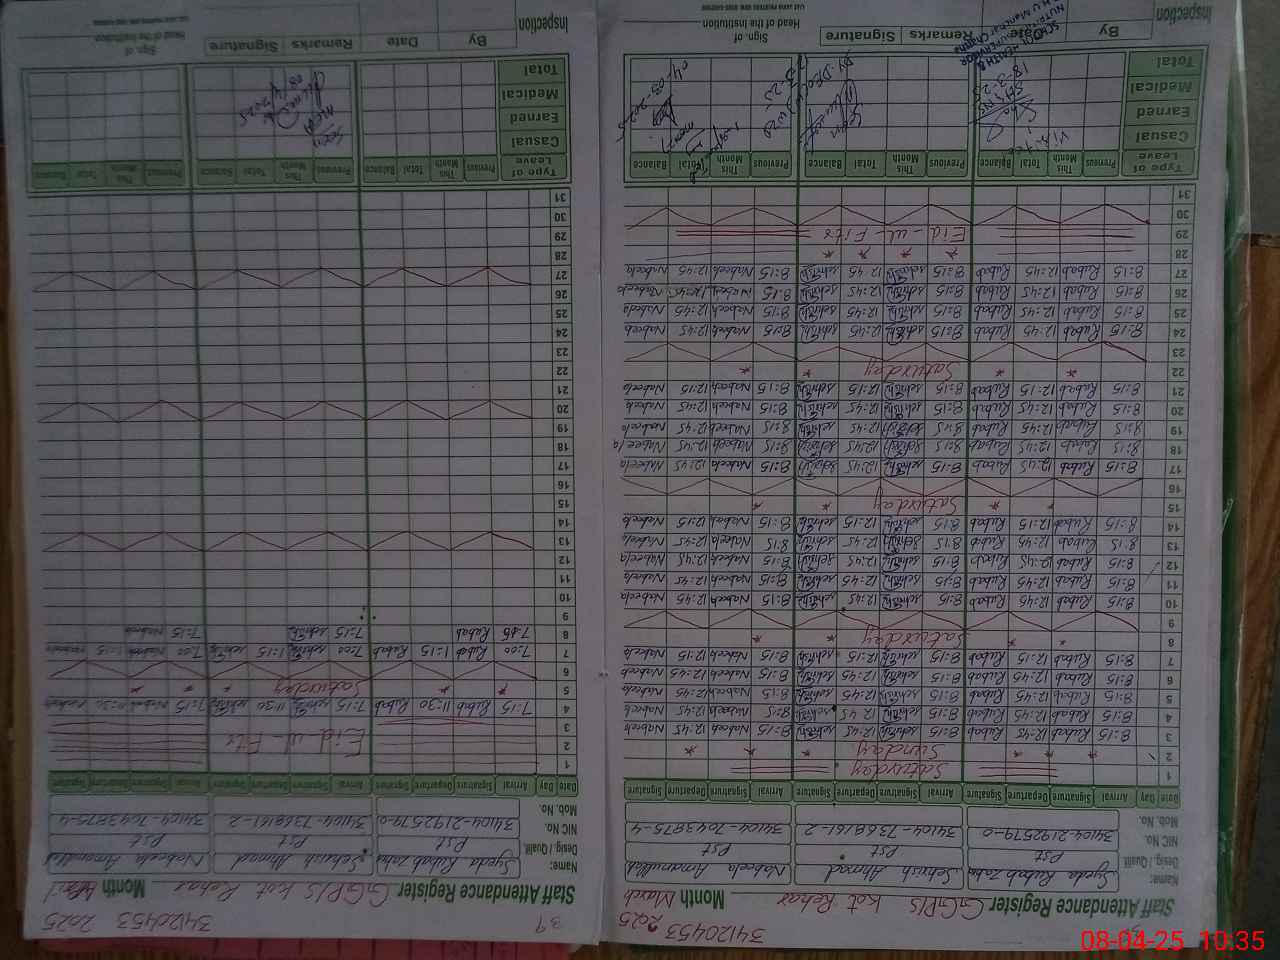 34120453 2025
Staff Attendance Register GGPS Kot Rehar Month March
Name: Syeda Rubab Zahra Sehrish Ahmad Nabeela Amanullah
Desig / Qualif. Pst Pst Pst
NIC No. 34104-2192579-0 34104-7368161-2 34104-7043875-4
Mob. No.
Date Day Arrival Signature Departure Signature Arrival Signature Departure Signature Arrival Signature Departure Signature
1 Saturday
2 Sunday
3 8:15 Rubab 12:45 Rubab 8:15 Sehrish 12:45 Sehrish 8:15 Nabeela 12:45 Nabeela
4 8:15 Rubab 12:45 Rubab 8:15 Sehrish 12:45 Sehrish 8:15 Nabeela 12:45 Nabeela
5 8:15 Rubab 12:45 Rubab 8:15 Sehrish 12:45 Sehrish 8:15 Nabeela 12:45 Nabeela
6 8:15 Rubab 12:45 Rubab 8:15 Sehrish 12:45 Sehrish 8:15 Nabeela 12:45 Nabeela
7 8:15 Rubab 12:15 Rubab 8:15 Sehrish 12:15 Sehrish 8:15 Nabeela 12:15 Nabeela
8 Saturday
9
10 8:15 Rubab 12:45 Rubab 8:15 Sehrish 12:45 Sehrish 8:15 Nabeela 12:45 Nabeela
11 8:15 Rubab 12:45 Rubab 8:15 Sehrish 12:45 Sehrish 8:15 Nabeela 12:45 Nabeela
12 8:15 Rubab 12:45 Rubab 8:15 Sehrish 12:45 Sehrish 8:15 Nabeela 12:45 Nabeela
13 8:15 Rubab 12:45 Rubab 8:15 Sehrish 12:45 Sehrish 8:15 Nabeela 12:45 Nabeela
14 8:15 Rubab 12:15 Rubab 8:15 Sehrish 12:15 Sehrish 8:15 Nabeela 12:15 Nabeela
15 Saturday
16
17 8:15 Rubab 12:45 Rubab 8:15 Sehrish 12:45 Sehrish 8:15 Nabeela 12:45 Nabeela
18 8:15 Rubab 12:45 Rubab 8:15 Sehrish 12:45 Sehrish 8:15 Nabeela 12:45 Nabeela
19 8:15 Rubab 12:45 Rubab 8:15 Sehrish 12:45 Sehrish 8:15 Nabeela 12:45 Nabeela
20 8:15 Rubab 12:45 Rubab 8:15 Sehrish 12:45 Sehrish 8:15 Nabeela 12:45 Nabeela
21 8:15 Rubab 12:15 Rubab 8:15 Sehrish 12:15 Sehrish 8:15 Nabeela 12:15 Nabeela
22 Saturday
23
24 8:15 Rubab 12:45 Rubab 8:15 Sehrish 12:45 Sehrish 8:15 Nabeela 12:45 Nabeela
25 8:15 Rubab 12:45 Rubab 8:15 Sehrish 12:45 Sehrish 8:15 Nabeela 12:45 Nabeela
26 8:15 Rubab 12:45 Rubab 8:15 Sehrish 12:45 Sehrish 8:15 Nabeela 12:45 Nabeela
27 8:15 Rubab 12:45 Rubab 8:15 Sehrish 12:45 Sehrish 8:15 Nabeela 12:45 Nabeela
28
29 Eid-ul-Fitr
30
31
Type of Leave Previous This Month Total Balance Previous This Month Total Balance Previous This Month Total Balance
Casual
Earned
Medical
Total
Visited
18-3-25
Seen
04-03-2025
SCHOOL HEALTH &
NUTRI. SUPERVISOR
Inspection By Date Remarks Signature Sign. of Head of the Institution
39 34120453 2025
Staff Attendance Register GGPS Kot Rehar Month April
Name: Syeda Rubab Zahra Sehrish Ahmad Nabeela Amanullah
Desig / Qualif. Pst Pst Pst
NIC No. 34104-2192579-0 34104-7368161-2 34104-7043875-4
Mob. No.
Date Day Arrival Signature Departure Signature Arrival Signature Departure Signature Arrival Signature Departure Signature
1
2 Eid ul-Fitr
3
4 7:15 Rubab 11:30 Rubab 7:15 Sehrish 11:30 Sehrish 7:15 Nabeela 11:30 Nabeela
5 Saturday
6
7 7:00 Rubab 1:15 Rubab 7:00 Sehrish 1:15 Sehrish 7:00 Nabeela 1:15 Nabeela
8 7:15 Rubab 7:15 Sehrish 7:15 Nabeela
9
10
11
12
13
14
15
16
17
18
19
20
21
22
23
24
25
26
27
28
29
30
31
Type of Leave Previous This Month Total Balance Previous This Month Total Balance Previous This Month Total Balance
Casual
Earned
Medical
Total
Seen
08/4/2025
Inspection By Date Remarks Signature Sign. of Head of the Institution
08-04-25 10:35